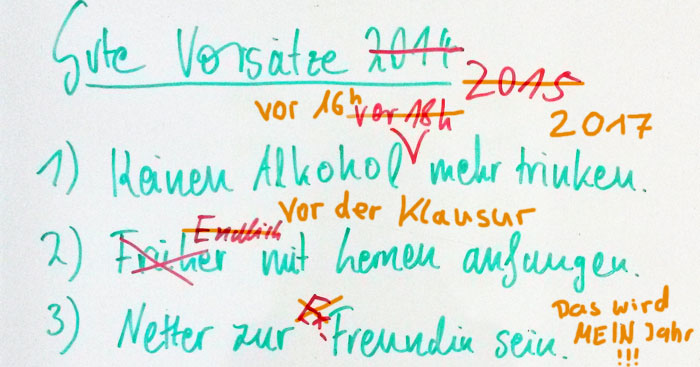 Gute Vorsätze 2014 2015
2017
vor 16h vor 18h
1) Keinen Alkohol mehr trinken.
Endlich vor der Klausur
2) Früher mit lernen anfangen.
3) Netter zur Ex-Freundin sein.
Das wird
MEIN Jahr
!!!